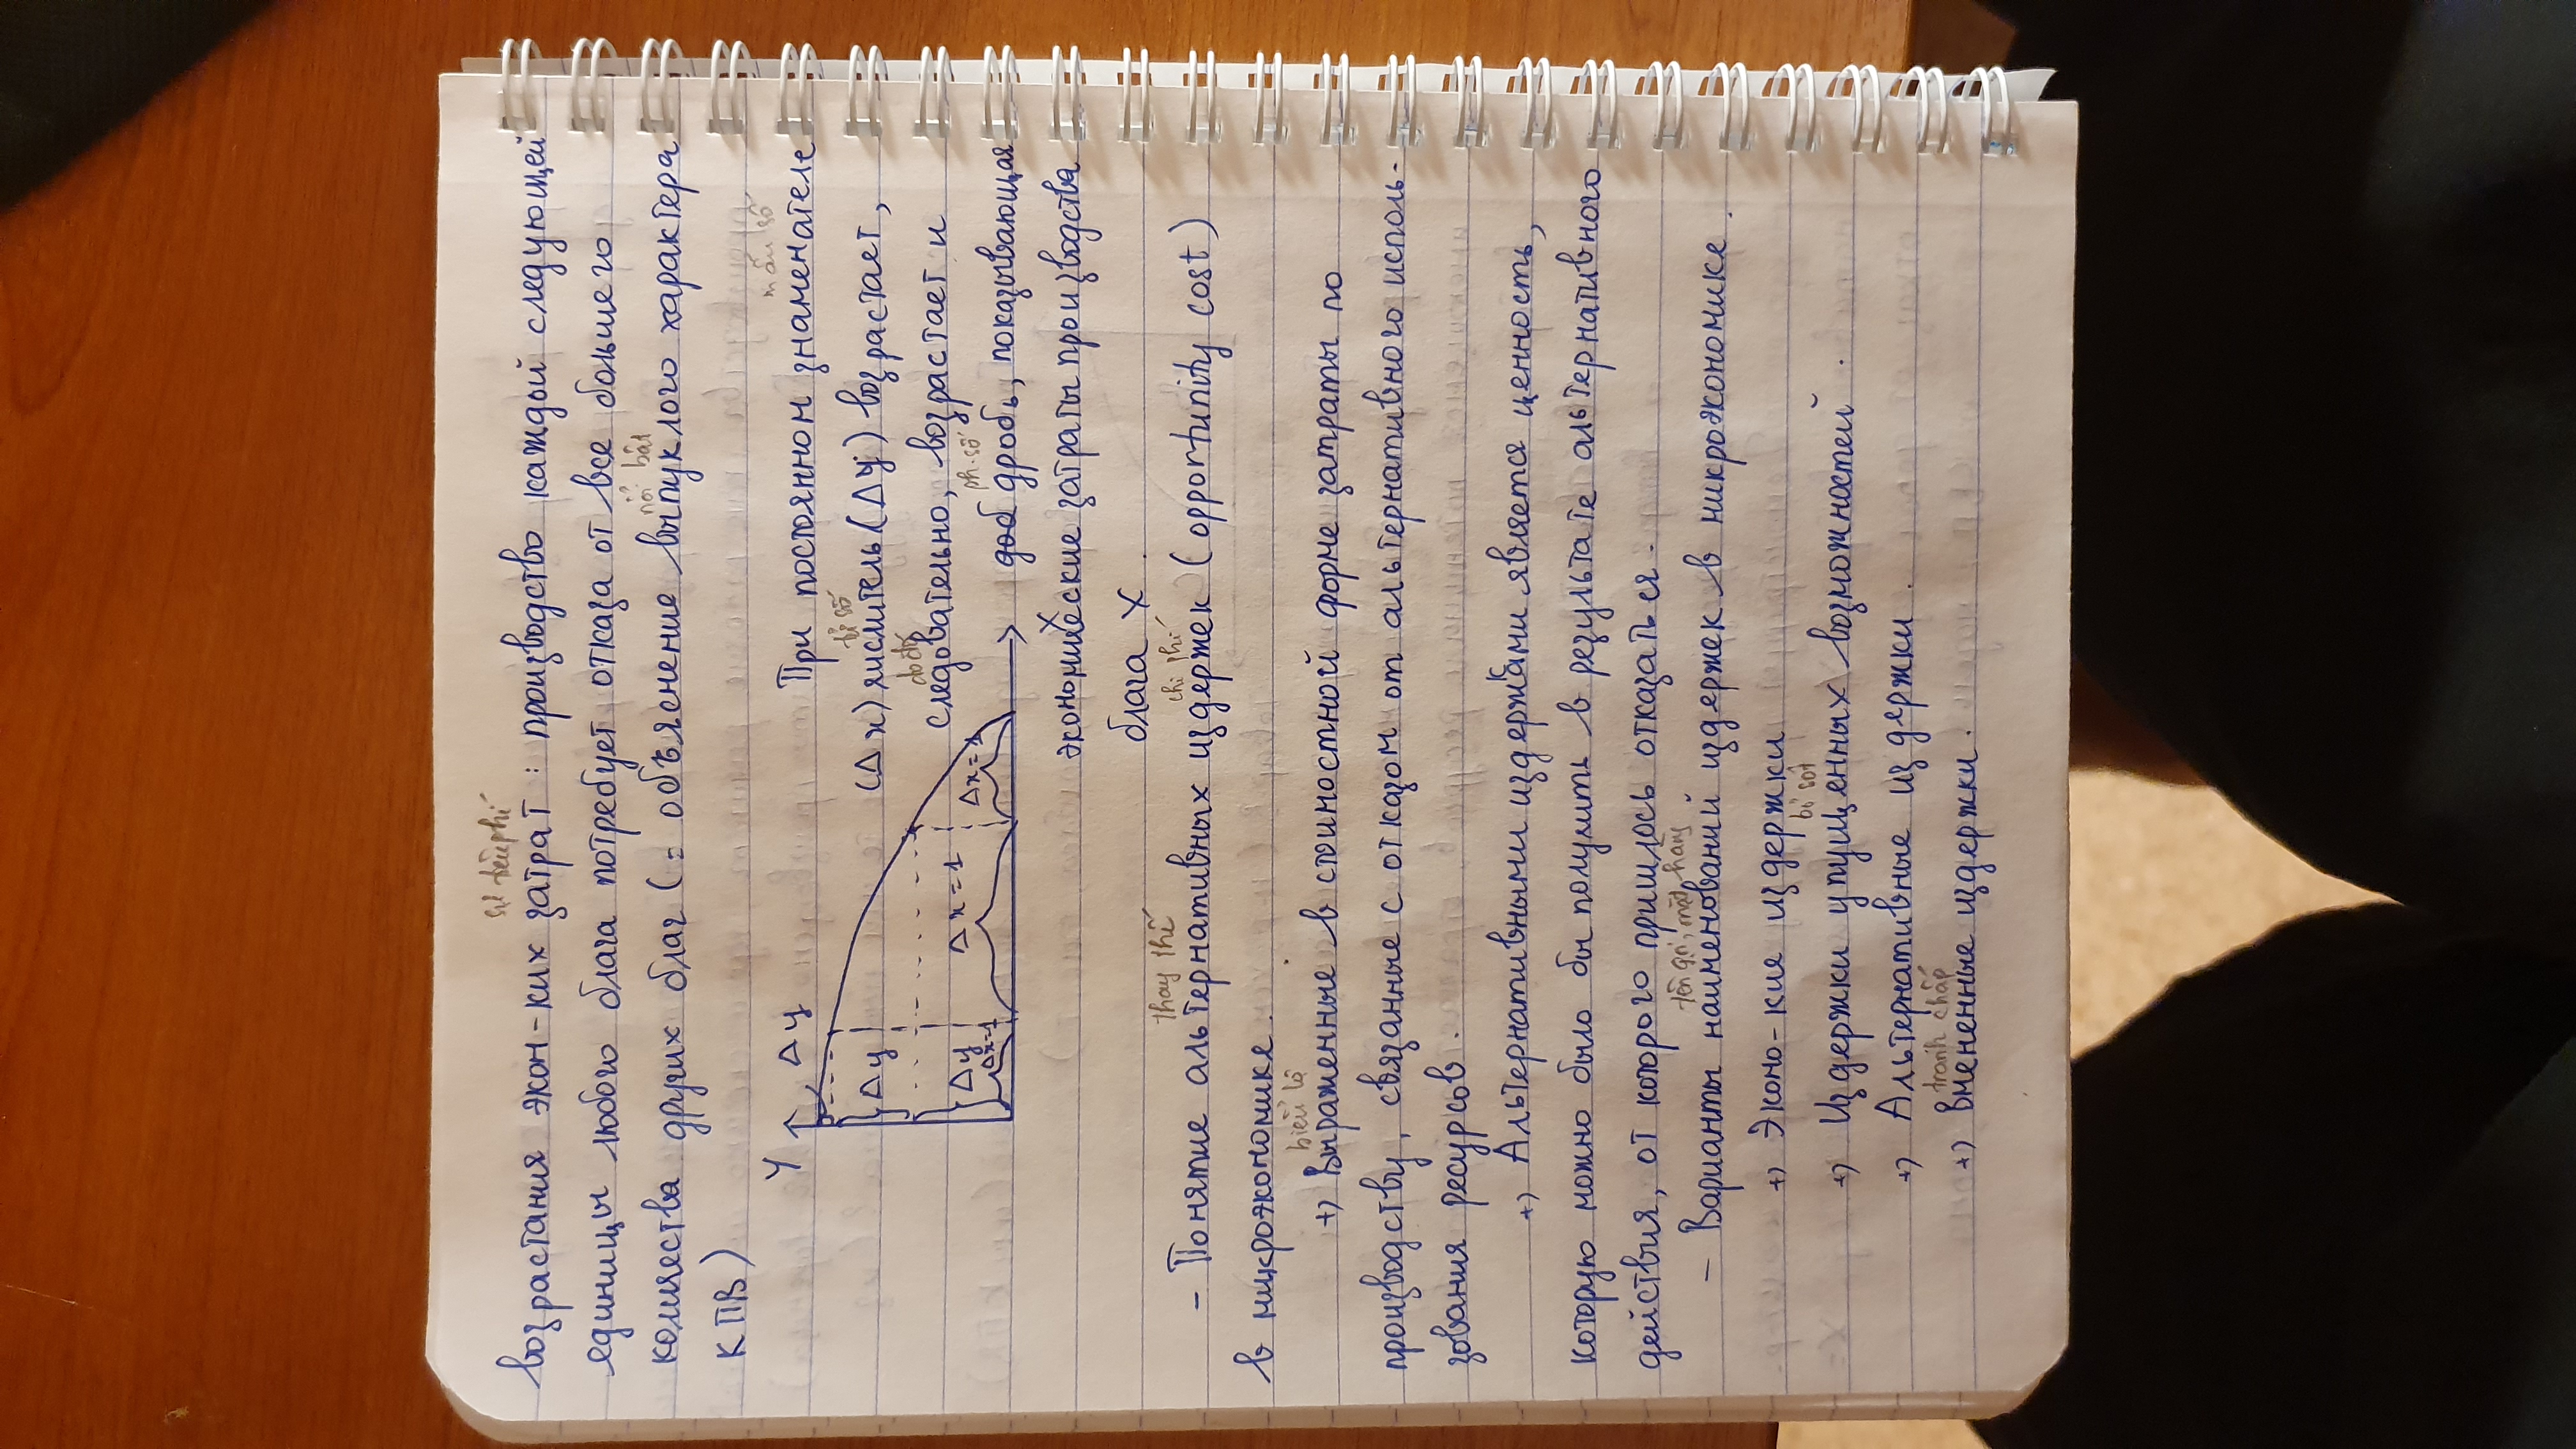 sự tiêu phí
возрастания экон-ких затрат : производство каждой следующей
единицы любого блага потребует отказа от все большего
nổi bật
количества других благ (= объяснение выпуклого характера
КПВ)
mẫu số
Y Δy При постоянном знаменателе
tử số
Δy (Δx) числитель (Δy) возрастает,
do đó
следовательно, возрастает и
Δy Δx=1 Δx=1 Δx=1
ph. số
доб дробь, показывающая
X
экономические затраты производства
блага X.
thay thế chi phí
- Понятие альтернативных издержек (opportunity cost)
в микроэкономике.
biểu lộ
+) Выраженные в стоимостной форме затраты по
производству, связанные с отказом от альтернативного исполь-
зования ресурсов.
+) Альтернативными издержками является ценность,
которую можно было бы получить в результате альтернативного
действия, от которого пришлось отказаться.
tên gọi, mặt hàng
- Варианты наименований издержек в микроэкономике.
+) Эконо-кие издержки
bỏ sót
+) Издержки упущенных возможностей.
+) Альтернативные издержки.
tranh chấp
+) Вмененные издержки.